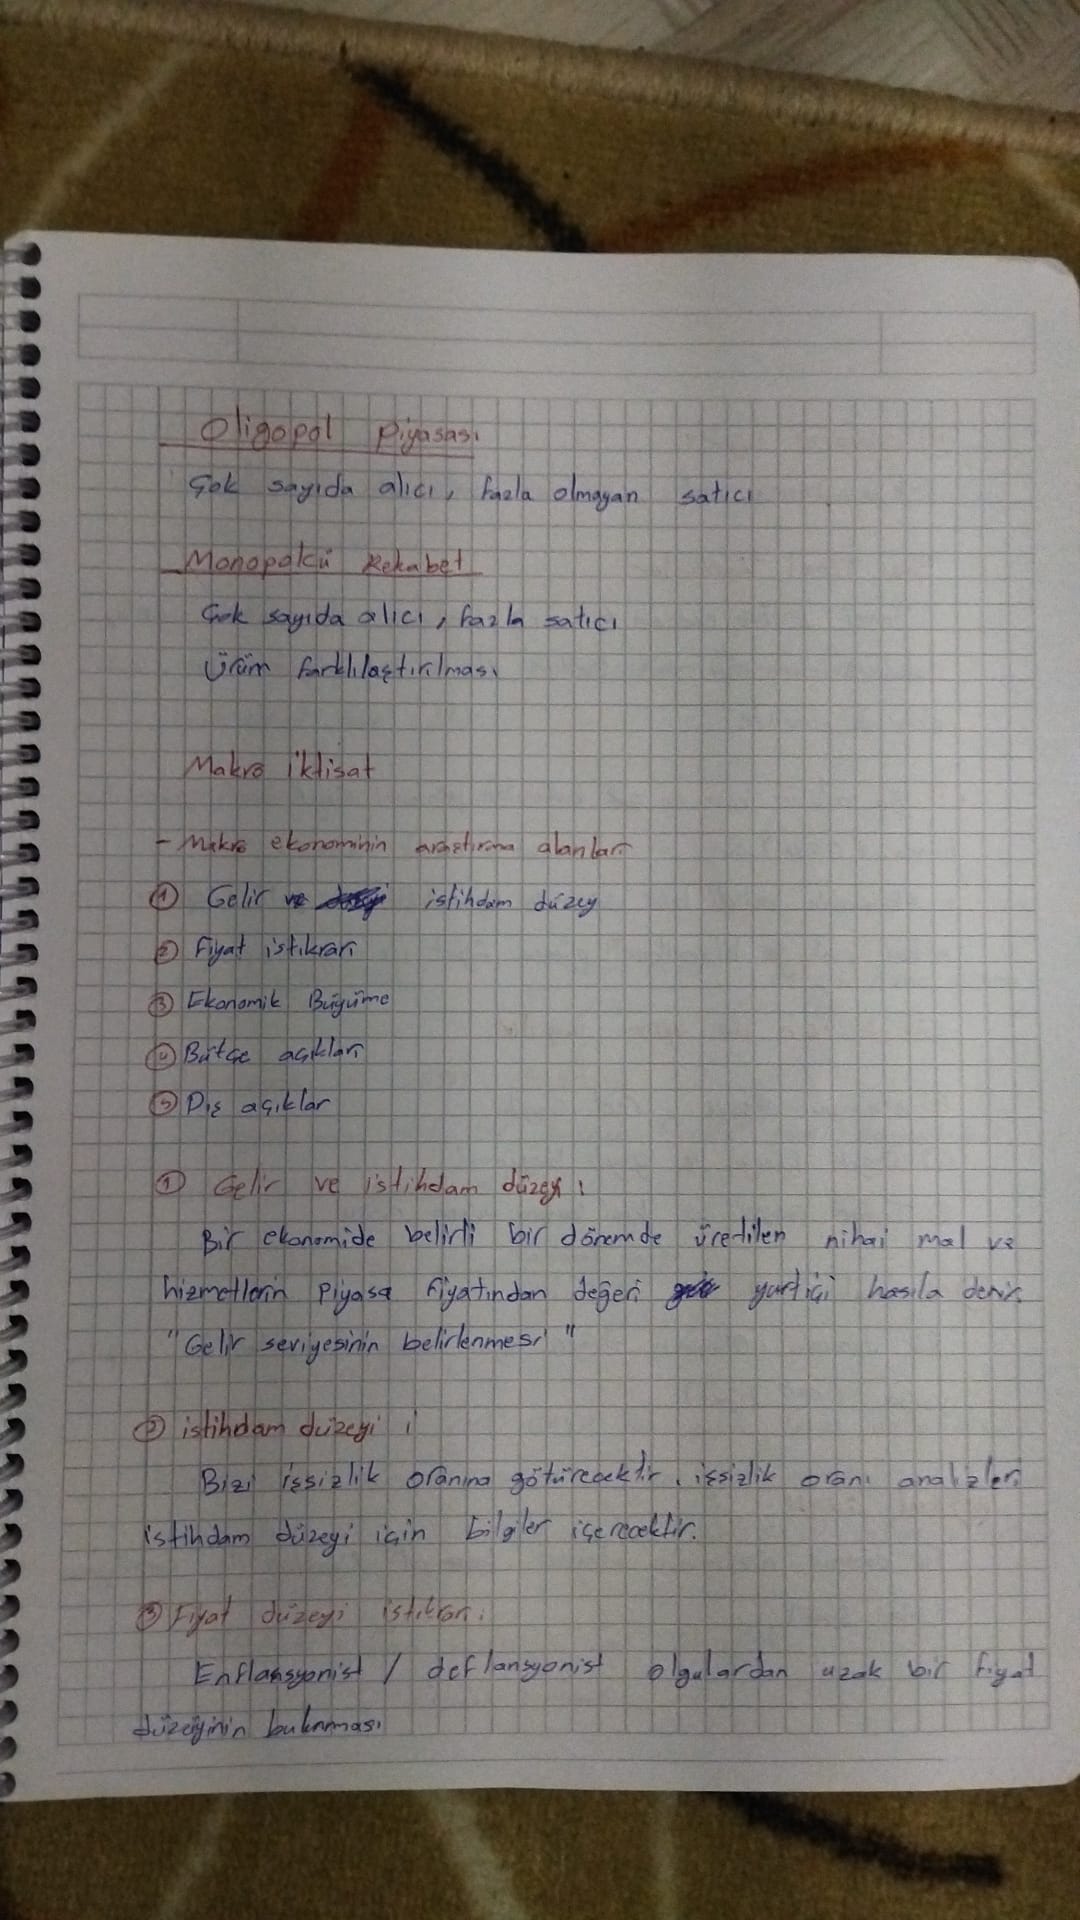 Oligopol Piyasası
Çok sayıda alıcı, fazla olmayan satıcı
Monopolcü Rekabet
Çok sayıda alıcı, fazla satıcı
Ürün farklılaştırılması
Makro iktisat
- Makro ekonominin araştırma alanları
① Gelir ve istihdam düzey
② Fiyat istikrarı
③ Ekonomik Büyüme
④ Bütçe açıkları
⑤ Dış açıklar
① Gelir ve istihdam düzeyi:
Bir ekonomide belirli bir dönemde üretilen nihai mal ve
hizmetlerin piyasa fiyatından değeri yurtiçi hasıla denir.
"Gelir seviyesinin belirlenmesi"
② istihdam düzeyi:
Bizi işsizlik oranına götürecektir. işsizlik oranı analizleri
istihdam düzeyi için bilgiler içerecektir.
③ Fiyat düzeyi istikrarı:
Enflansyonist / deflansyonist olgulardan uzak bir fiyat
düzeyinin bulunması